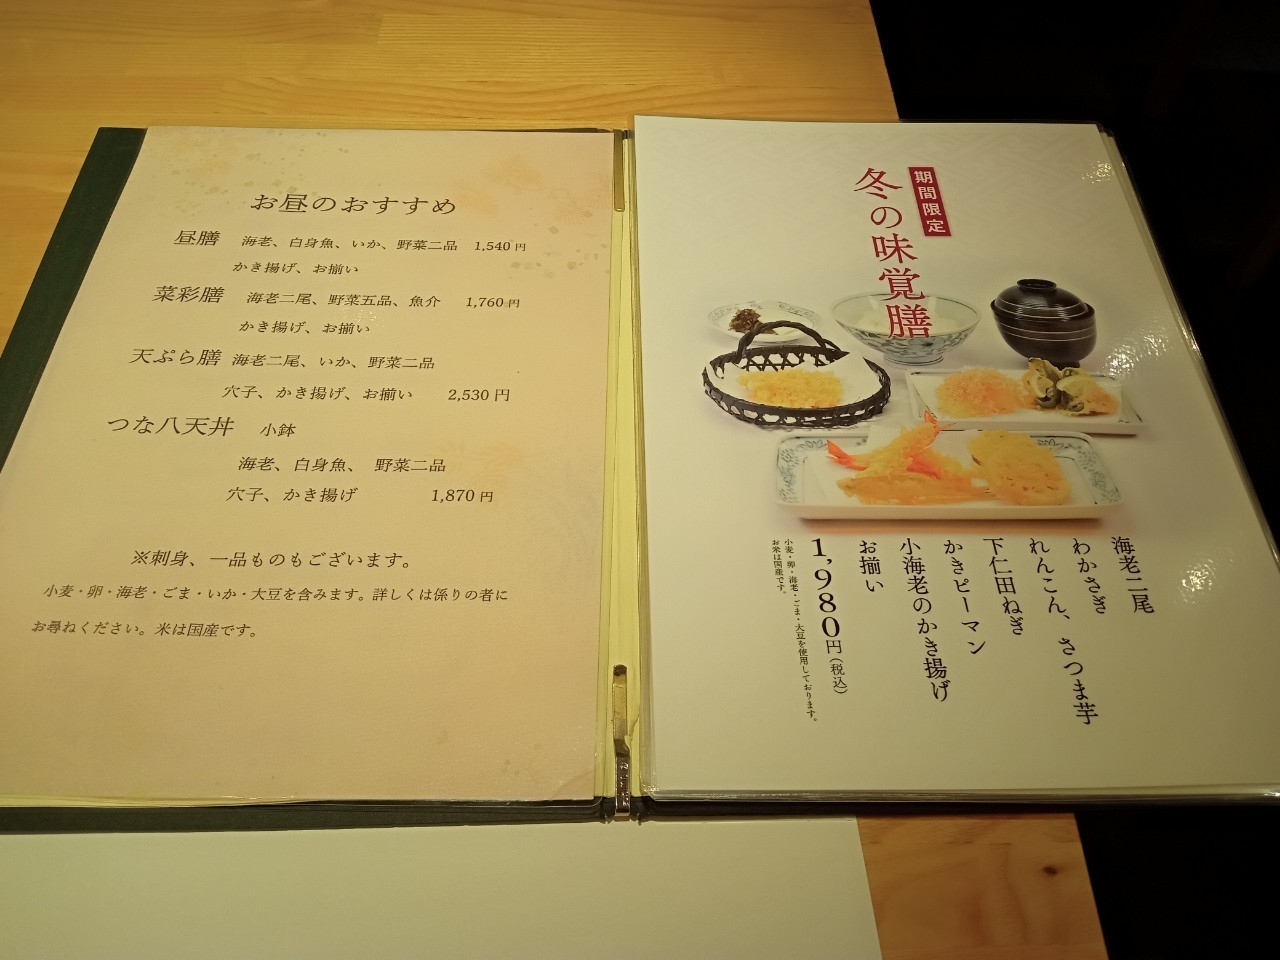 お昼のおすすめ
昼膳 海老、白身魚、いか、野菜二品 1,540 円
かき揚げ、お揃い
菜彩膳 海老二尾、野菜五品、魚介 1,760 円
かき揚げ、お揃い
天ぷら膳 海老二尾、いか、野菜二品
穴子、かき揚げ、お揃い 2,530 円
つな八天丼 小鉢
海老、白身魚、野菜二品
穴子、かき揚げ 1,870 円
※刺身、一品ものもございます。
小麦・卵・海老・ごま・いか・大豆を含みます。詳しくは係りの者に
お尋ねください。米は国産です。
期間限定
冬の味覚膳
海老二尾
わかさぎ
れんこん、さつま芋
下仁田ねぎ
かきピーマン
小海老のかき揚げ
お揃い
1,980円(税込)
小麦・卵・海老・ごま・大豆を使用しております。
お米は国産です。